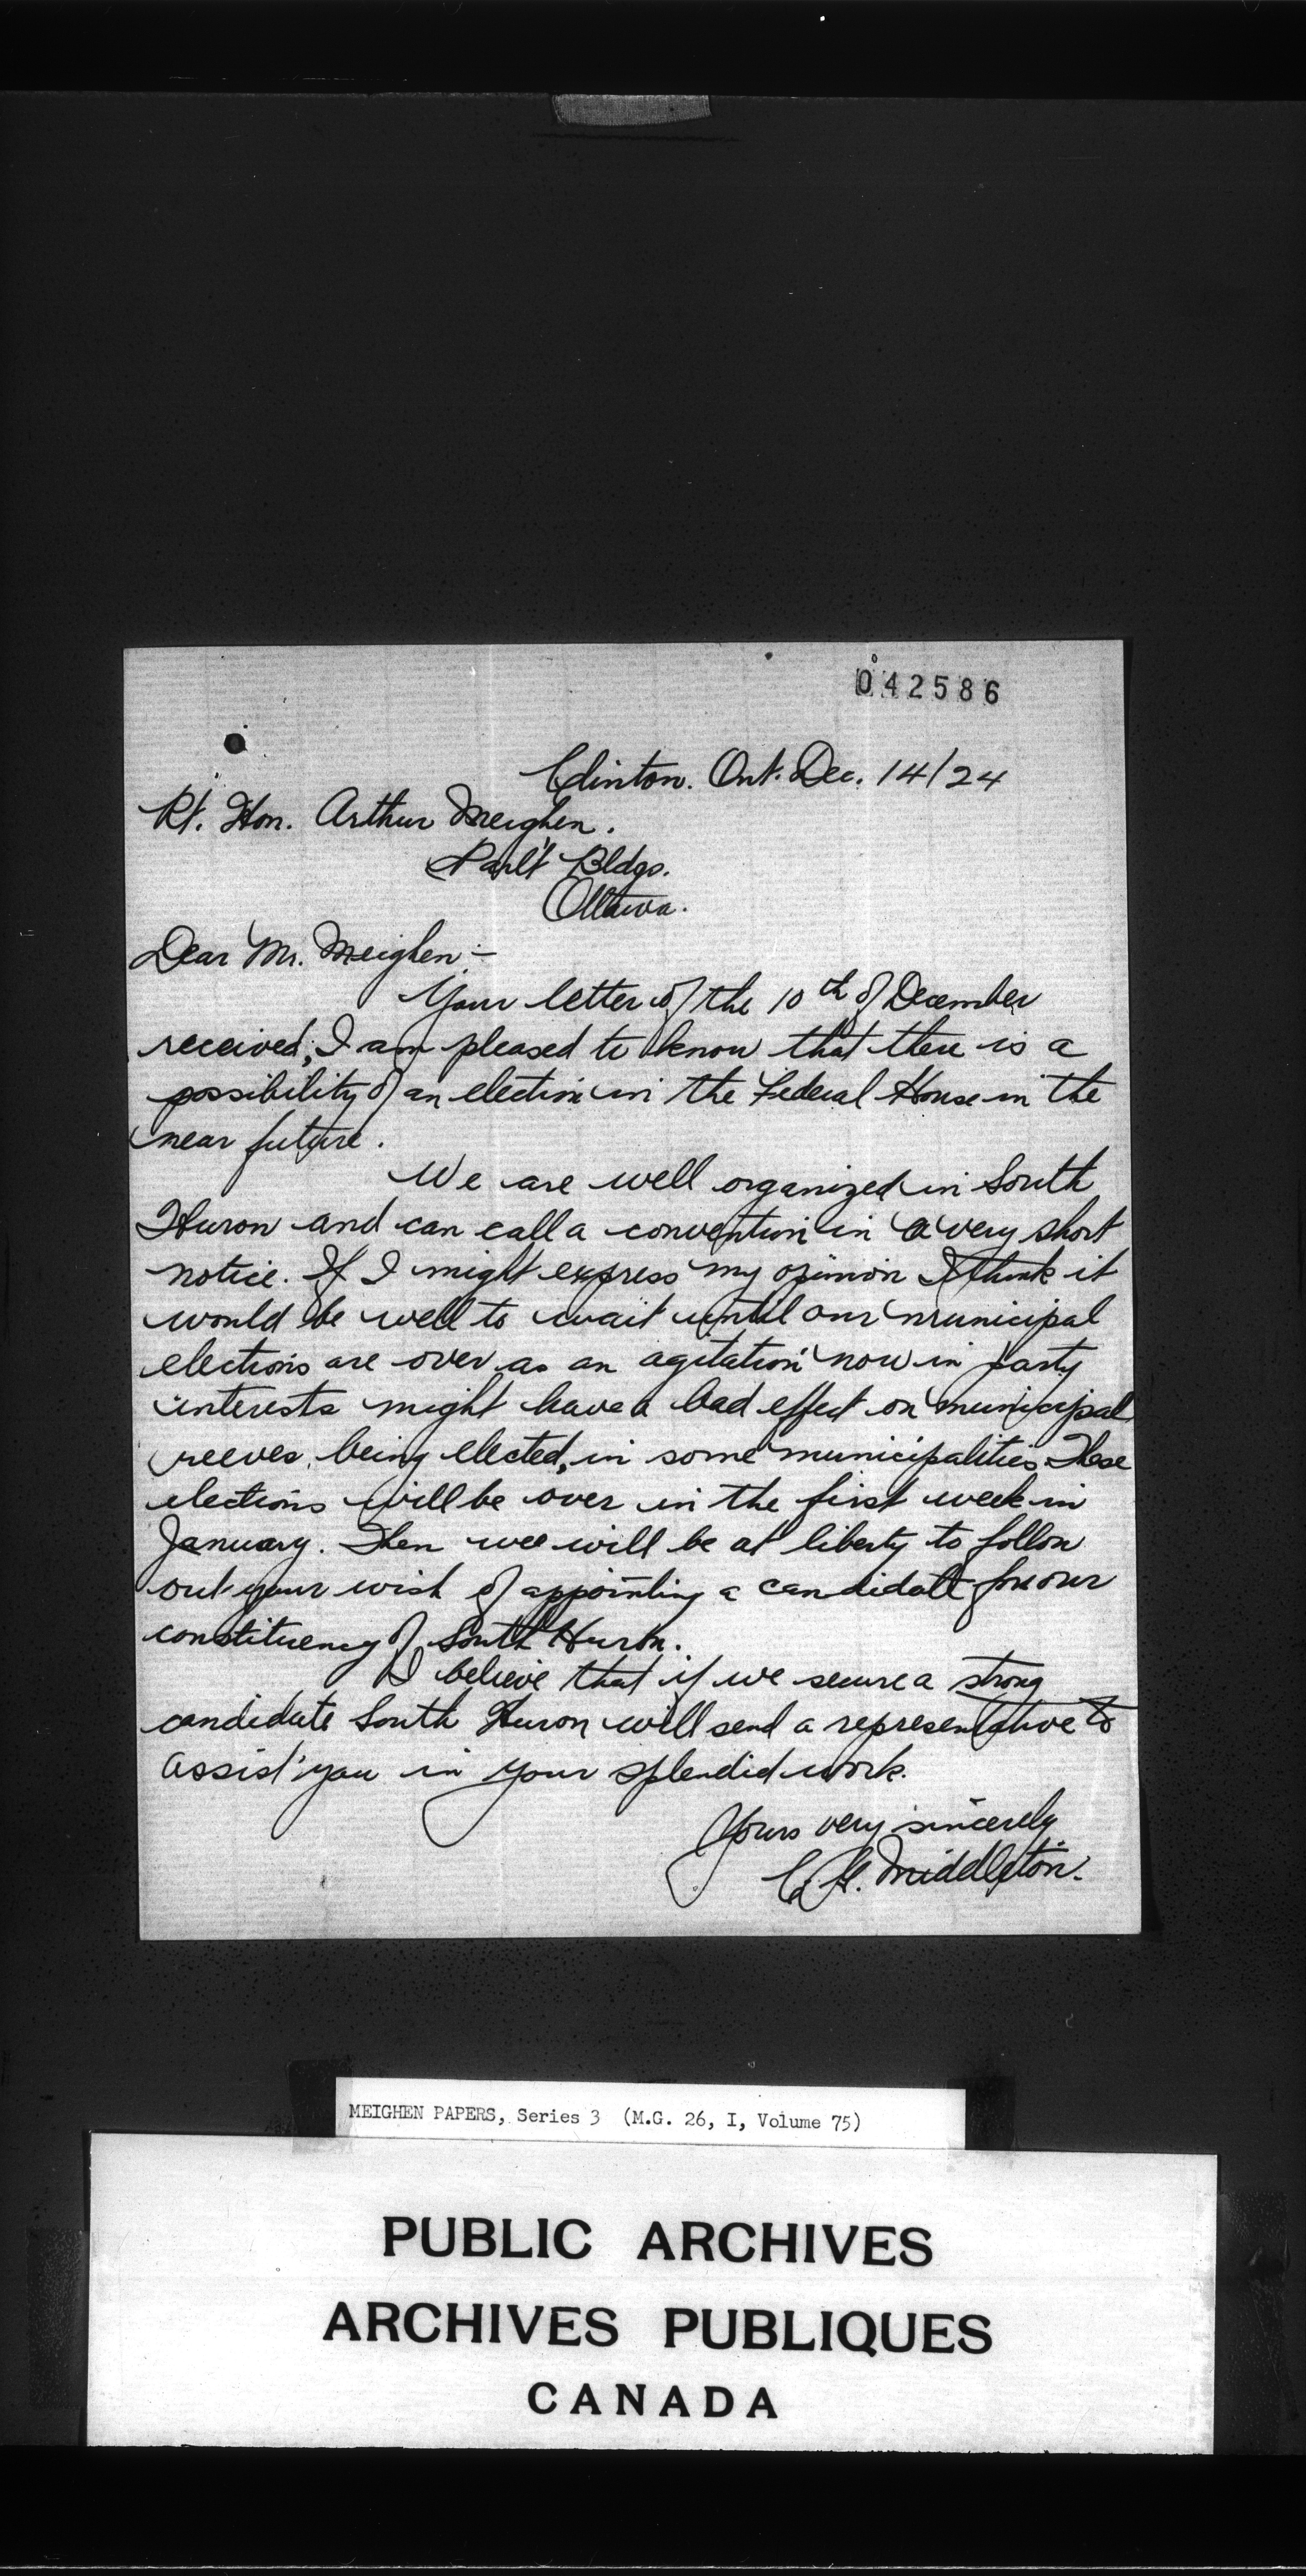 042586
Clinton. Ont. Dec. 14/24
Rt. Hon. Arthur Meighen.
Parl't Bldgs.
Ottawa.
Dear Mr. Meighen:-
Your letter of the 10th of December
received; I am pleased to know that there is a
possibility of an election in the Federal House in the
near future.
We are well organized in South
Huron and can call a convention in a very short
notice. If I might express my opinion I think it
would be well to wait until our municipal
elections are over as an agitation now in party
interests might have a bad effect on municipal
reeves being elected, in some municipalities. These
elections will be over in the first week in
January. Then wee will be at liberty to follow
out your wish of appointing a candidate for our
constituency of South Huron.
I believe that if we secure a strong
candidate South Huron will send a representative to
assist you in your splendid work.
Yours very sincerely
C. H. Middleton.
MEIGHEN PAPERS, Series 3 (M.G. 26, I, Volume 75)
PUBLIC ARCHIVES
ARCHIVES PUBLIQUES
CANADA